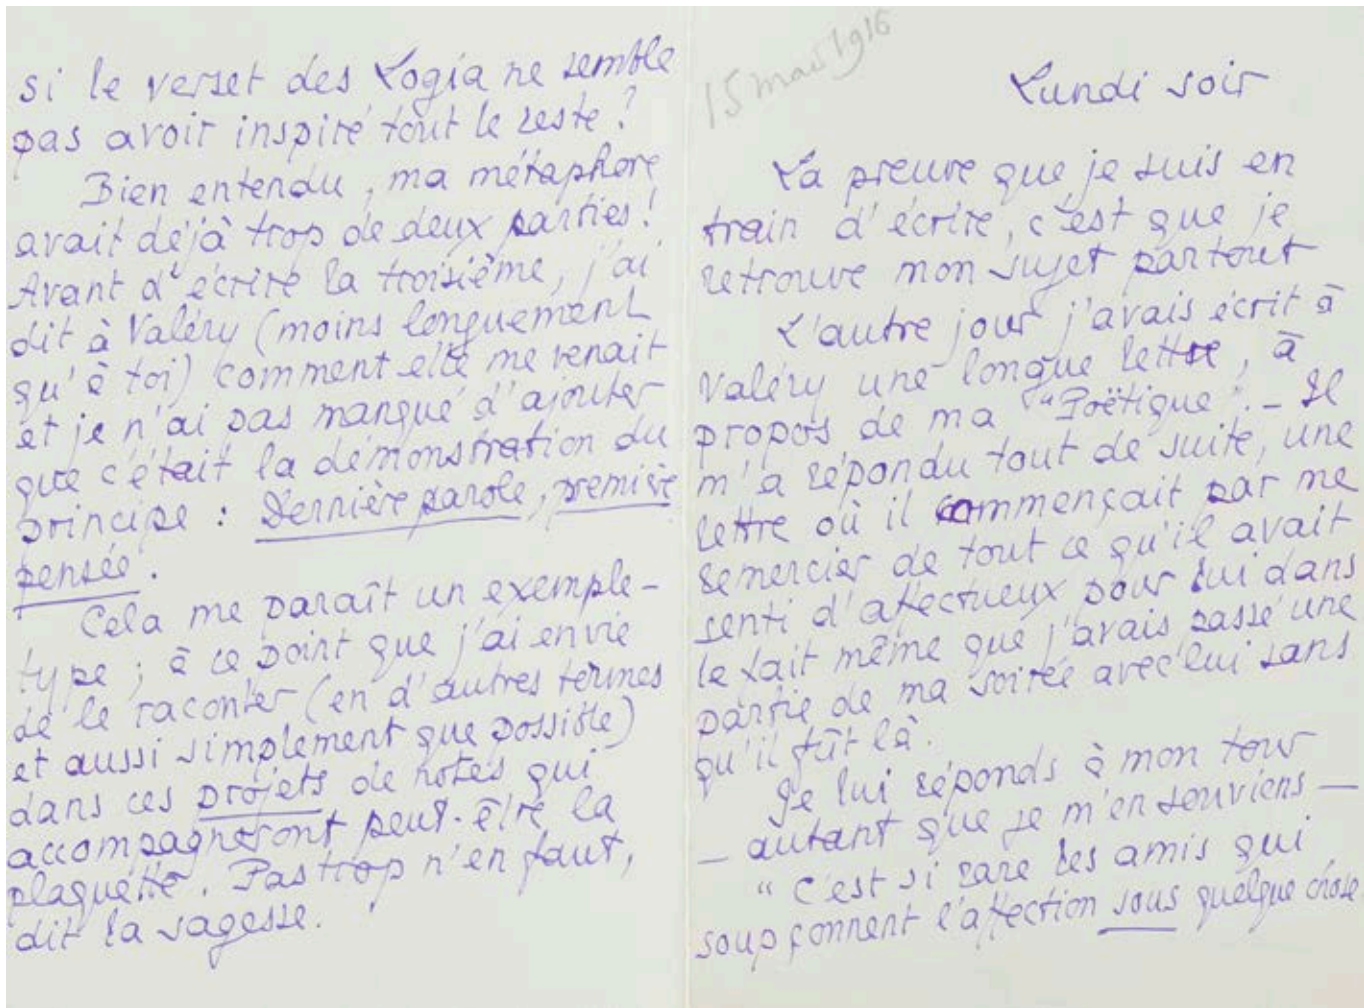 si le verset des Logia ne semble
pas avoir inspiré tout le reste ?
Bien entendu, ma métaphore
avait déjà trop de deux parties !
Avant d'écrire la troisième, j'ai
dit à Valéry (moins longuement
qu'à toi) comment elle me venait
et je n'ai pas manqué d'ajouter
que c'était la démonstration du
principe : Dernière parole, première
pensée.
Cela me paraît un exemple-
type ; à ce point que j'ai envie
de le raconter (en d'autres termes
et aussi simplement que possible)
dans ces projets de notes qui
accompagneront peut-être la
plaquette. Pas trop n'en faut,
dit la sagesse.
15 mai 1916
Lundi soir
La preuve que je suis en
train d'écrire, c'est que je
retrouve mon sujet partout
L'autre jour j'avais écrit à
Valéry une longue lettre, à
propos de ma "Poëtique". – Il
m'a répondu tout de suite, une
lettre où il commençait par me
remercier de tout ce qu'il avait
senti d'affectueux pour lui dans
le fait même que j'avais passé une
partie de ma soirée avec lui sans
qu'il fût là.
Je lui réponds à mon tour
– autant que je m'en souviens –
"C'est si rare les amis qui
soupçonnent l'affection sous quelque chose